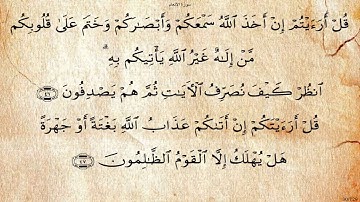 سورة الأنعام
قُلْ أَرَءَيْتُمْ إِنْ أَخَذَ اللَّهُ سَمْعَكُمْ وَأَبْصَٰرَكُمْ وَخَتَمَ عَلَىٰ قُلُوبِكُم
مَّنْ إِلَٰهٌ غَيْرُ اللَّهِ يَأْتِيكُم بِهِ ۗ
انظُرْ كَيْفَ نُصَرِّفُ الْآيَٰتِ ثُمَّ هُمْ يَصْدِفُونَ ﴿٤٦﴾
قُلْ أَرَءَيْتَكُمْ إِنْ أَتَىٰكُمْ عَذَابُ اللَّهِ بَغْتَةً أَوْ جَهْرَةً
هَلْ يُهْلَكُ إِلَّا الْقَوْمُ الظَّٰلِمُونَ ﴿٤٧﴾